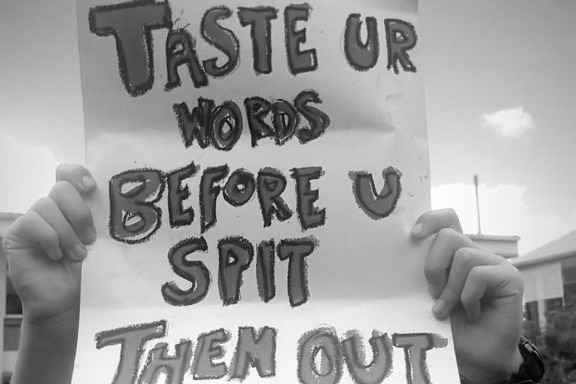 TASTE UR
WORDS
BEFORE U
SPIT
THEM OUT